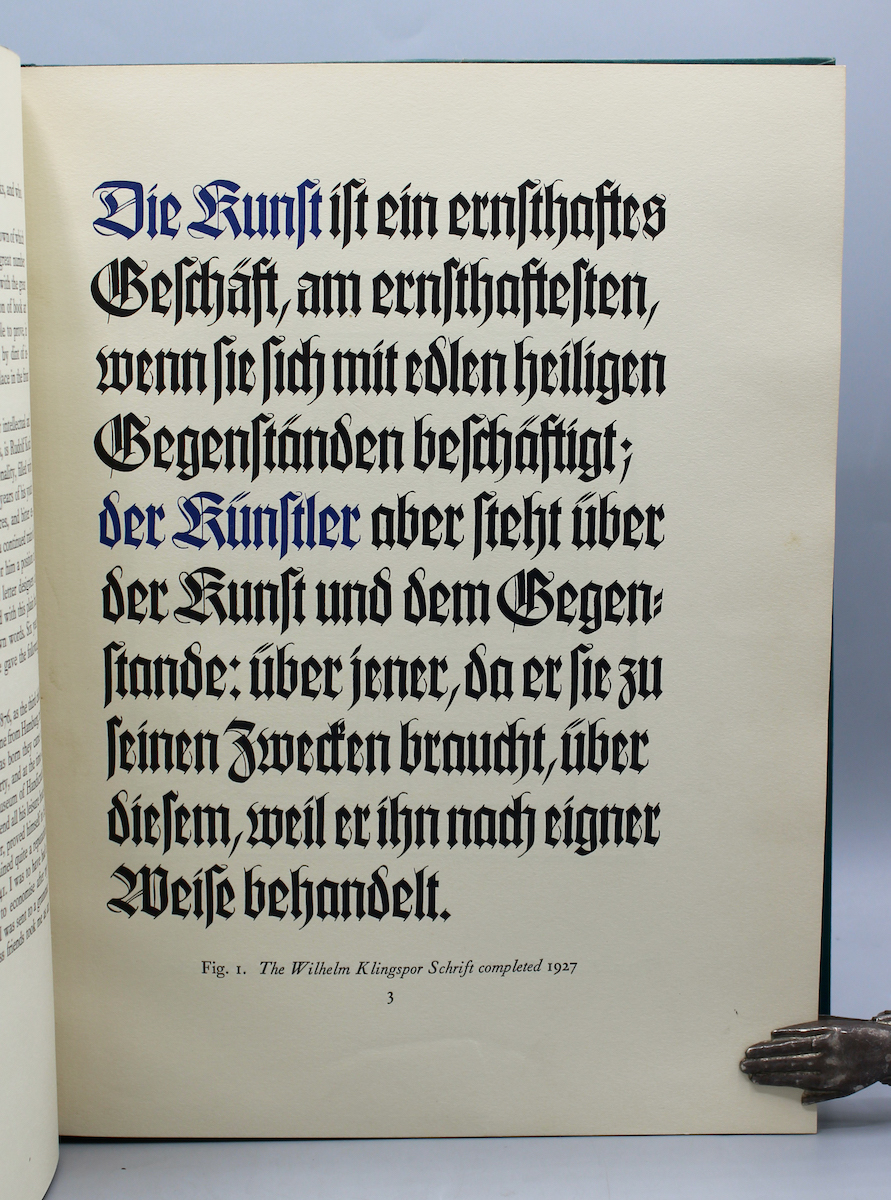 Die Kunſt iſt ein ernſthaftes
Geſchäft, am ernſthafteſten,
wenn ſie ſich mit edlen heiligen
Gegenſtänden beſchäftigt;
der Künſtler aber ſteht über
der Kunſt und dem Gegen⸗
ſtande: über jener, da er ſie zu
ſeinen Zwecken braucht, über
dieſem, weil er ihn nach eigner
Weiſe behandelt.
Fig. 1. The Wilhelm Klingspor Schrift completed 1927
3